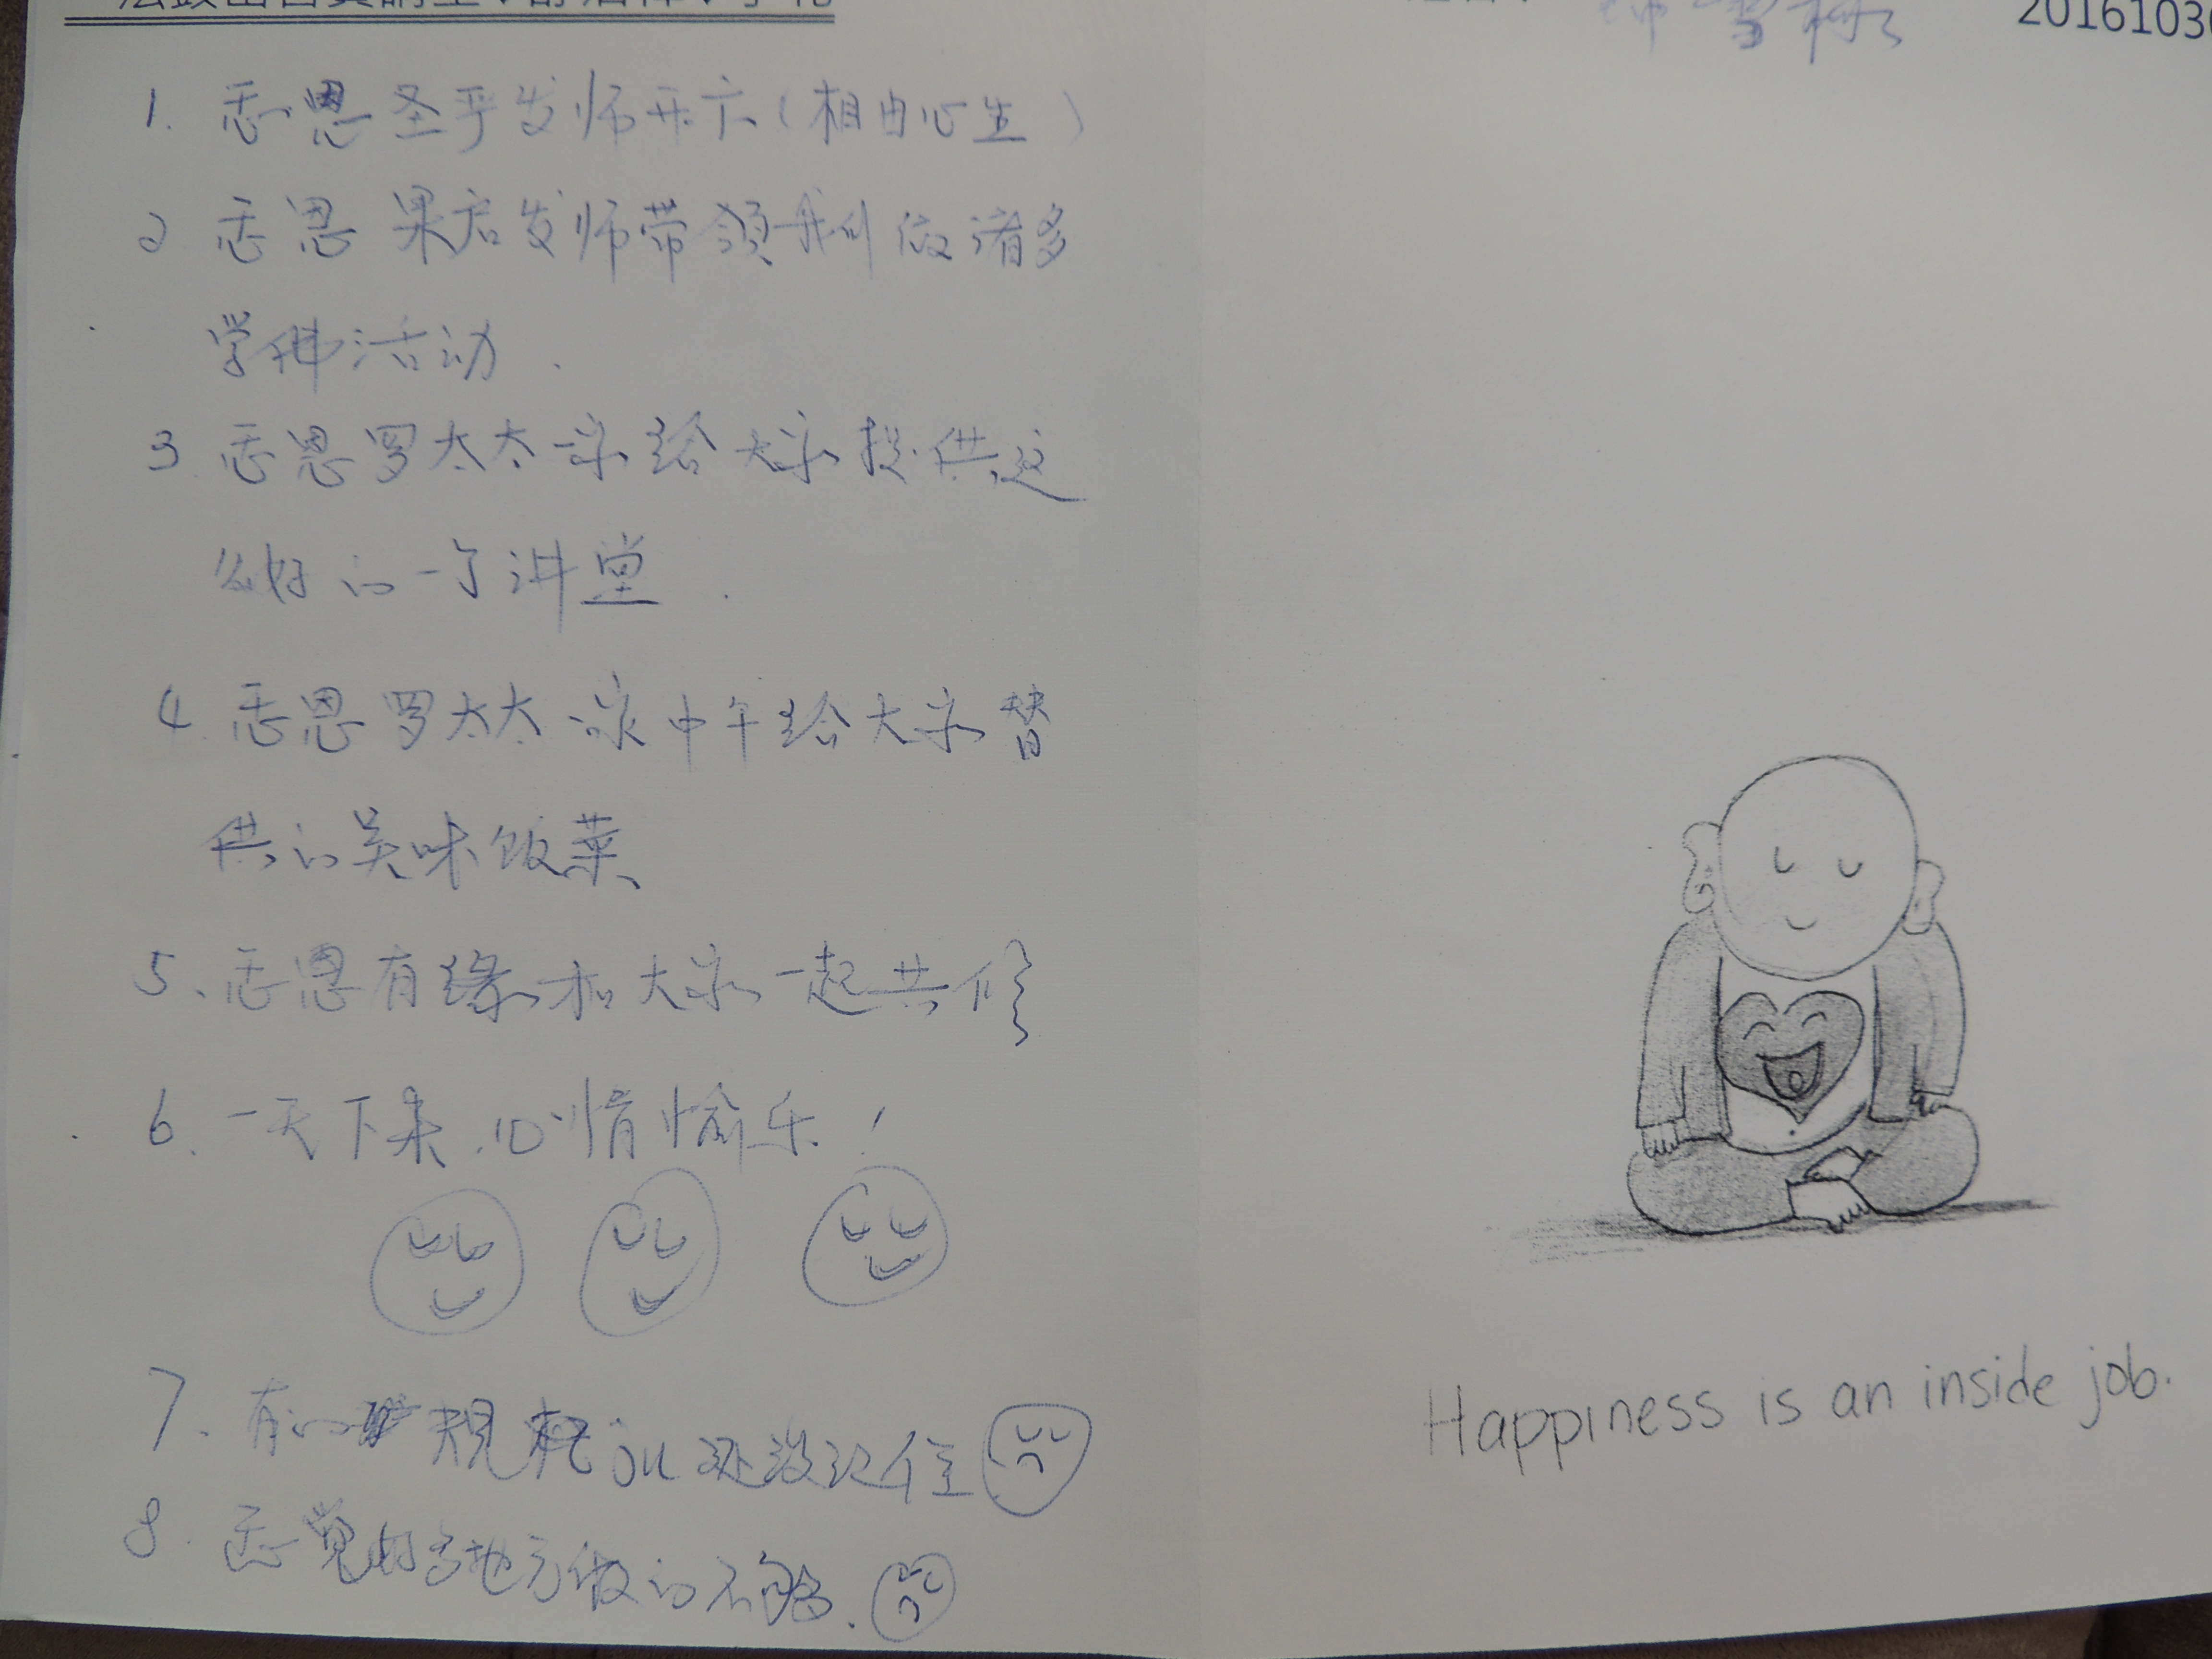 20161030
1. 感恩圣严法师开示(相由心生)
2 感恩果启法师带领我们做诸多
学佛活动.
3 感恩罗太太一家给大家提供这
么好的一个讲堂.
4 感恩罗太太一家中午给大家替
供的美味饭菜
5、感恩有缘和大家一起共修
6、一天下来,心情愉乐!
7、有的规矩还没记住
8. 感觉的地方做的不够.
Happiness is an inside job.